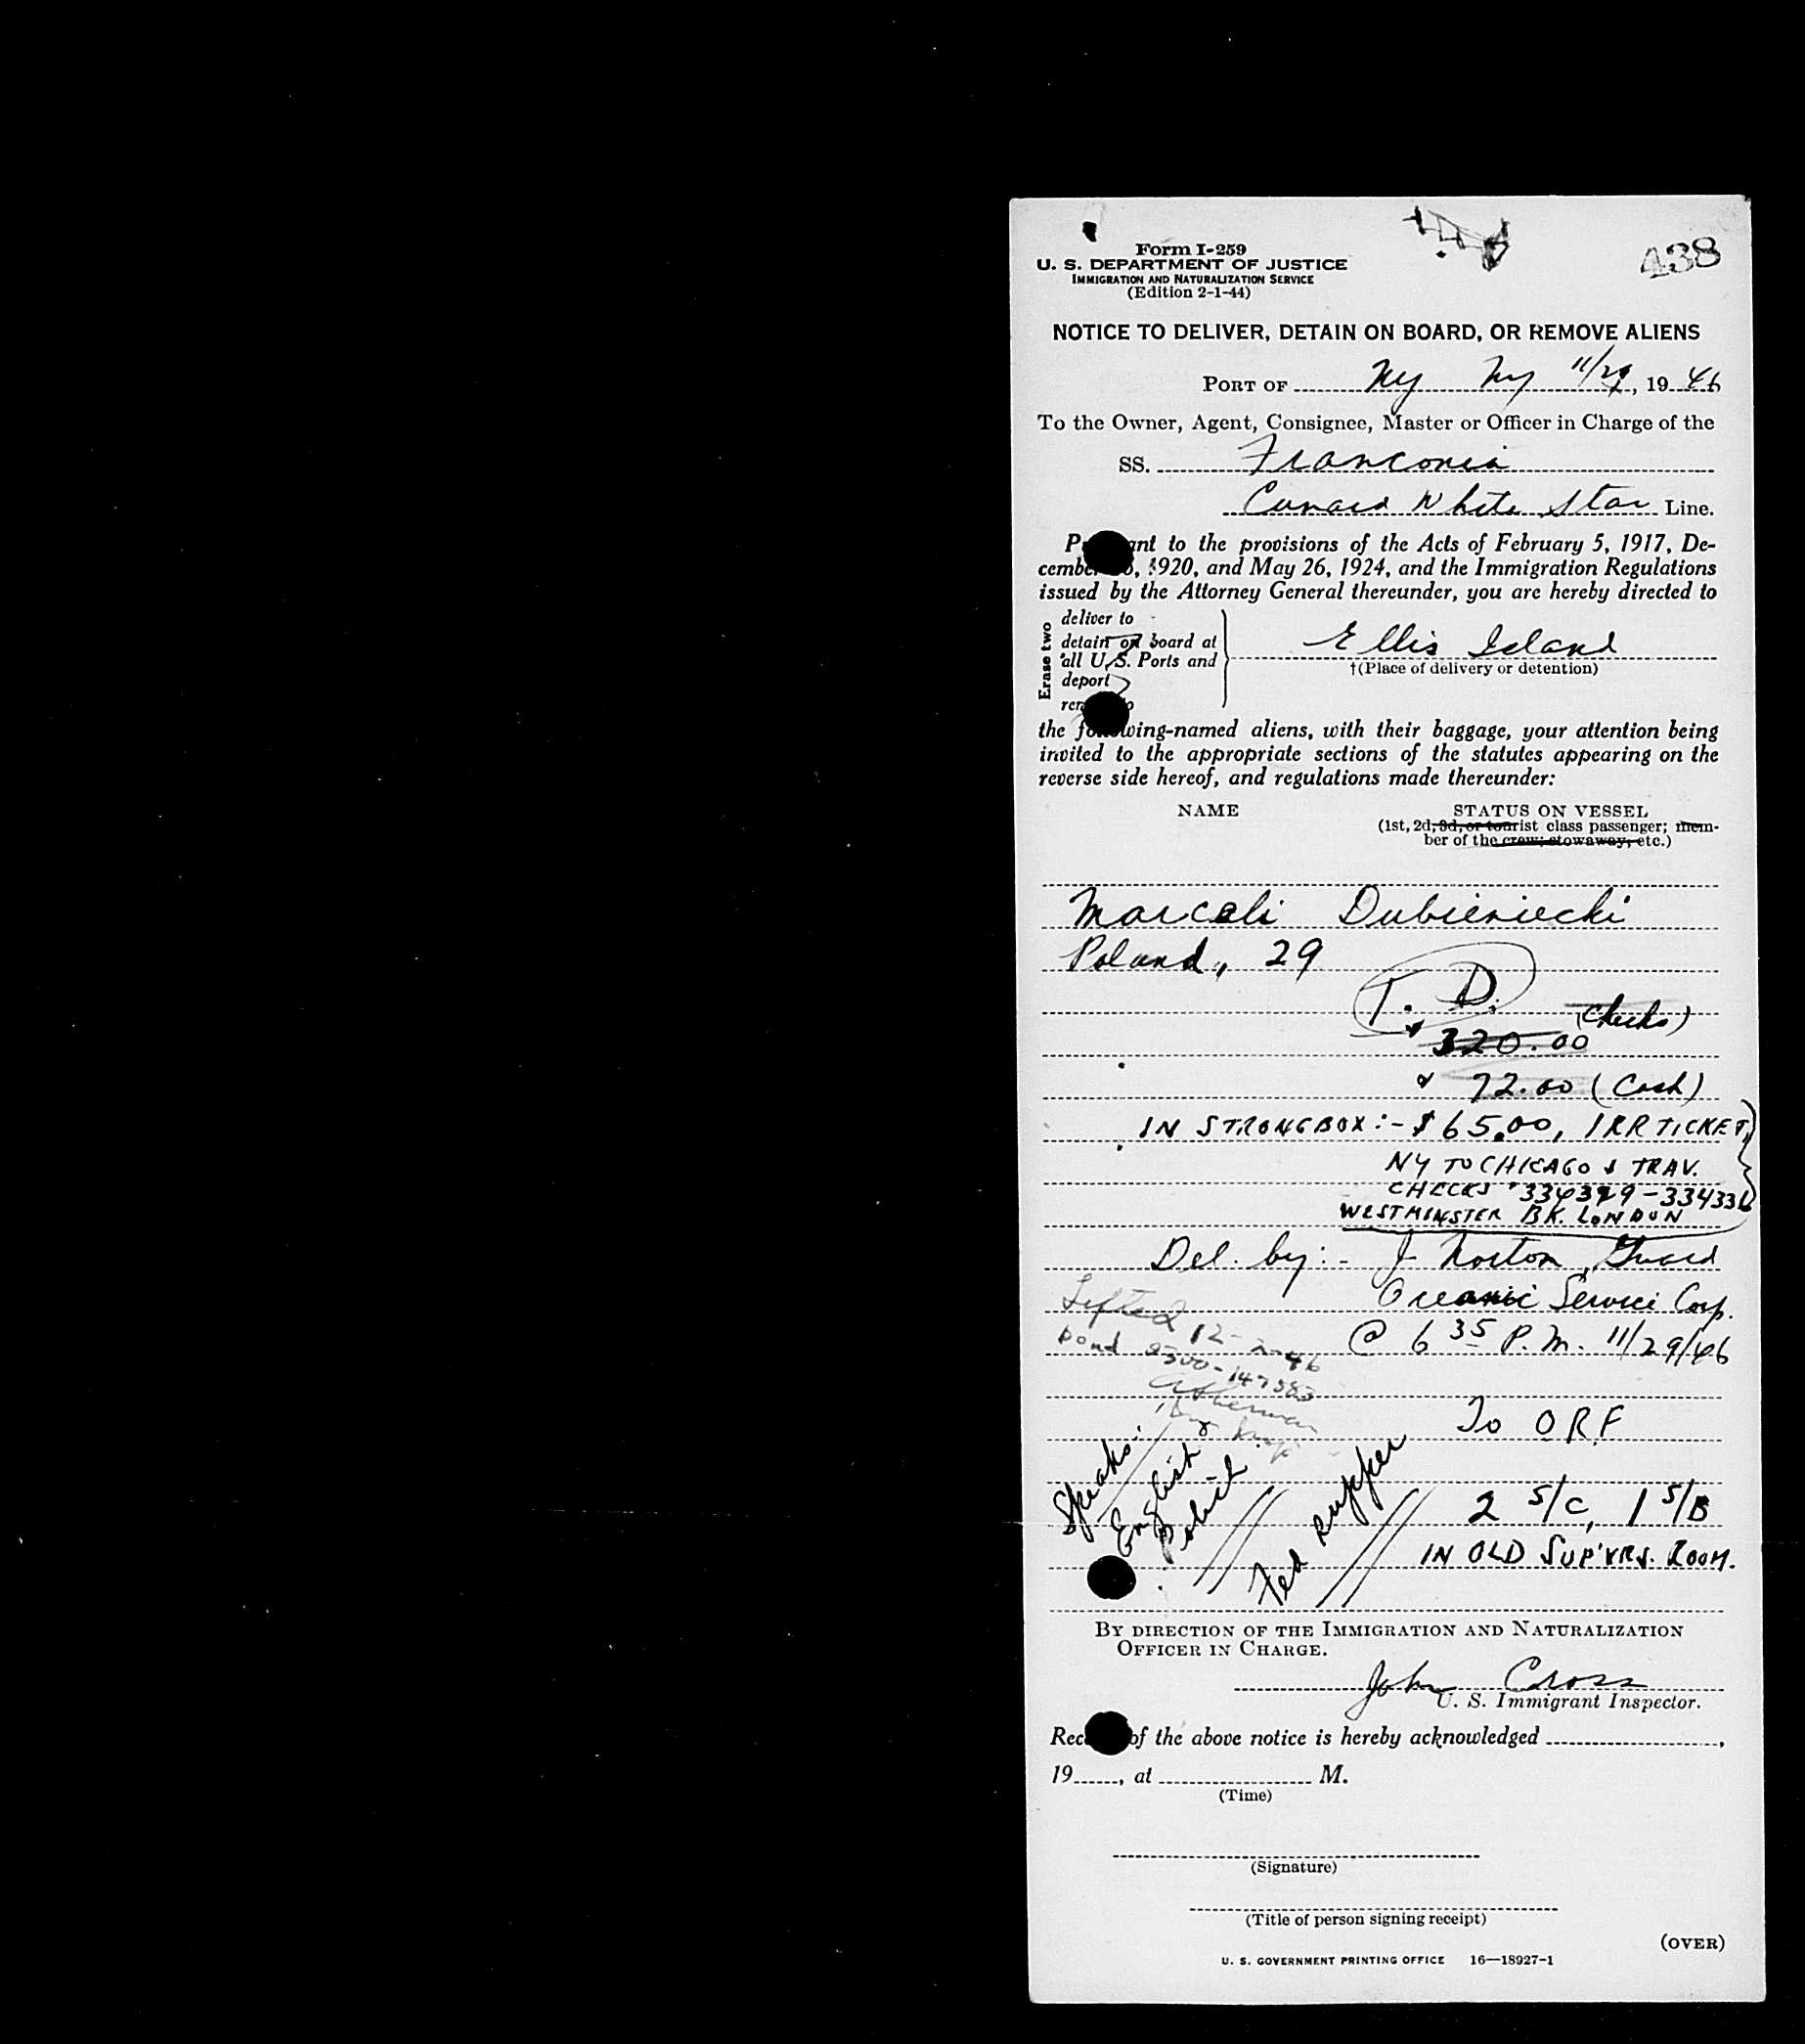 438
Form I-259
U. S. DEPARTMENT OF JUSTICE
IMMIGRATION AND NATURALIZATION SERVICE
(Edition 2-1-44)
NOTICE TO DELIVER, DETAIN ON BOARD, OR REMOVE ALIENS
PORT OF NY NY 11/29, 1946
To the Owner, Agent, Consignee, Master or Officer in Charge of the
SS. Franconia
Cunard White Star Line.
ant to the provisions of the Acts of February 5, 1917, De-
cember, 1920, and May 26, 1924, and the Immigration Regulations
issued by the Attorney General thereunder, you are hereby directed to
Erase two
deliver to
detain on board at
all U.S. Ports and
deport
Ellis Island
†(Place of delivery or detention)
the following-named aliens, with their baggage, your attention being
invited to the appropriate sections of the statutes appearing on the
reverse side hereof, and regulations made thereunder:
NAME STATUS ON VESSEL
(1st, 2d, 3d, or tourist class passenger; mem-
ber of the crew; stowaway, etc.)
Marceli Dubieniecki
Poland, 29
T. D.
(Checks)
320.00
72.00 (Cash)
IN STRONGBOX:- $65.00, 1 RR TICKET,
NY TO CHICAGO & TRAV.
CHECKS 334329-334336
WESTMINSTER BK. LONDON
Del. by:- J Norton, Guard
Oceanic Service Corp.
@ 6 35 P.M. 11/29/46
Lifted 12-2-46
Bond
To ORF
Speaks:
English
Polish
Fed supper
2 S/C, 1 S/B
IN OLD SUP'VRS. ROOM.
BY DIRECTION OF THE IMMIGRATION AND NATURALIZATION
OFFICER IN CHARGE.
John Cross
U. S. Immigrant Inspector.
of the above notice is hereby acknowledged ,
19 , at M.
(Time)
(Signature)
(Title of person signing receipt)
(OVER)
U. S. GOVERNMENT PRINTING OFFICE 16—18927-1